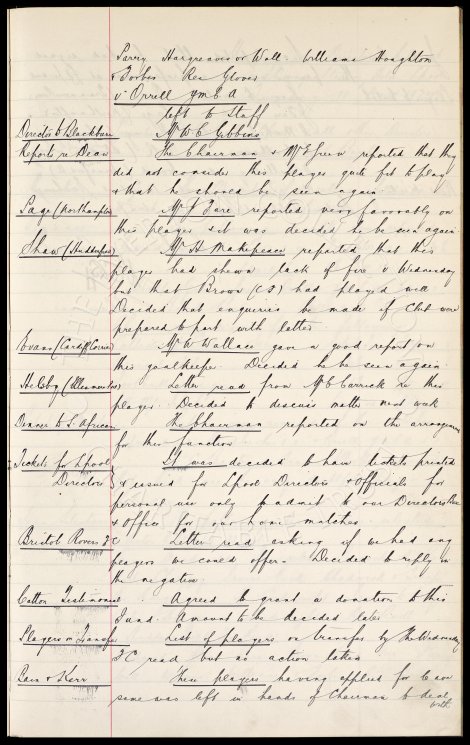 Parry Hargreaves or Wall. Williams Houghton
& Forbes Res Glover
v Orrell YMCA
left to Staff
Director to Blackburn Mr W C Gibbins
Reports re Dean The Chairman & Mr E Green reported that they
did not consider this players quite fit to play
& that he should be seen again.
Page (Northampton Mr J Fare reported very favorably on
this player & it was decided he be seen again
Shaw (Huddersfield) Mr H Makepeace reported that this
player had shewn lack of fire v Wednesday
but that Brown (CF) had played well
Decided that enquiries be made if Club were
prepared to part with latter
Evans (Cardiff Corries) Mr W Wallace gave a good report on
this goalkeeper. Decided he be seen again
(Ellesmere Letter read from Mr E Carrick re this
player. Decided to discuss matter next week
Dinner to S. African The Chairman reported on the arrangements
for this function
Tickets for Lpool It was decided to have tickets printed
Directors } & issued for Lpool Directors & Officials for
personal use only to admit to our Directors Box
& Office for our home matches.
Bristol Rovers F C Letter read asking if we had any
players we could offer. Decided to reply in
the negative.
Cotton Testimonial Agreed to grant a donation to this
Fund. Amount to be decided later
Players on Transfer List of players on transfer by The Wednesday
F C read but no action taken
Bain & Kerr These players having applied for
same was left in hands of Chairman to deal
with